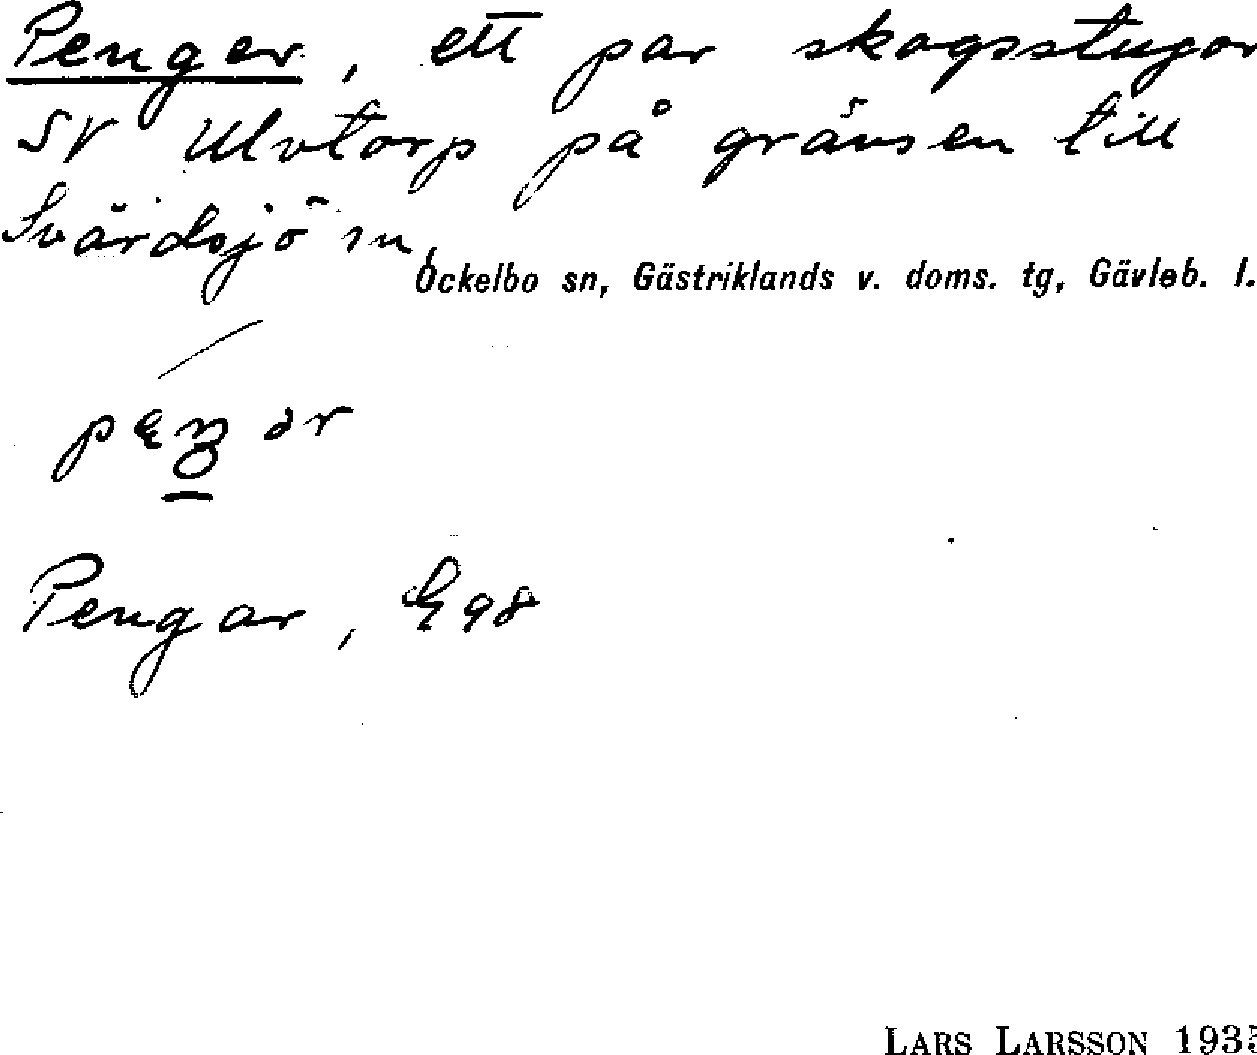 Penger, ett par skogsstugor
SV Ulvtorp på gränsen till
Svärdsjö sn,
Ockelbo sn, Gästriklands v. doms. tg, Gävleb. l.
Pengar, E98
LARS LARSSON 193